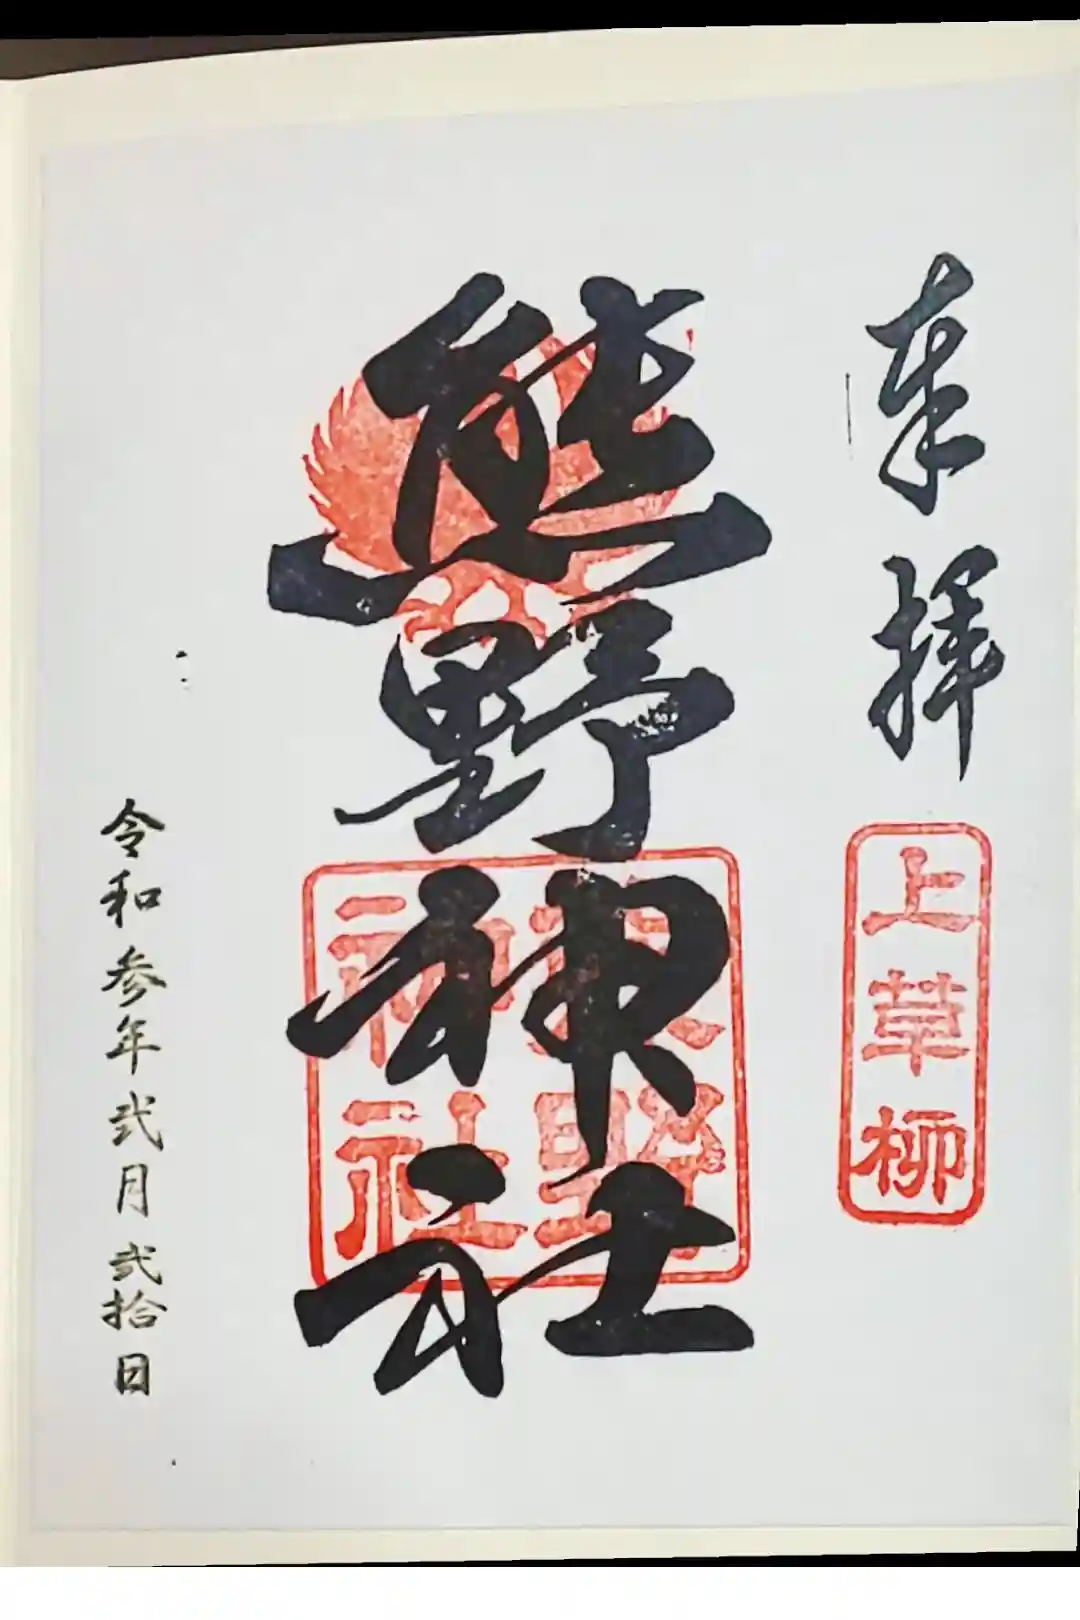 奉拝
上草柳
熊野神社
熊野
神社
令和参年弐月弐拾日